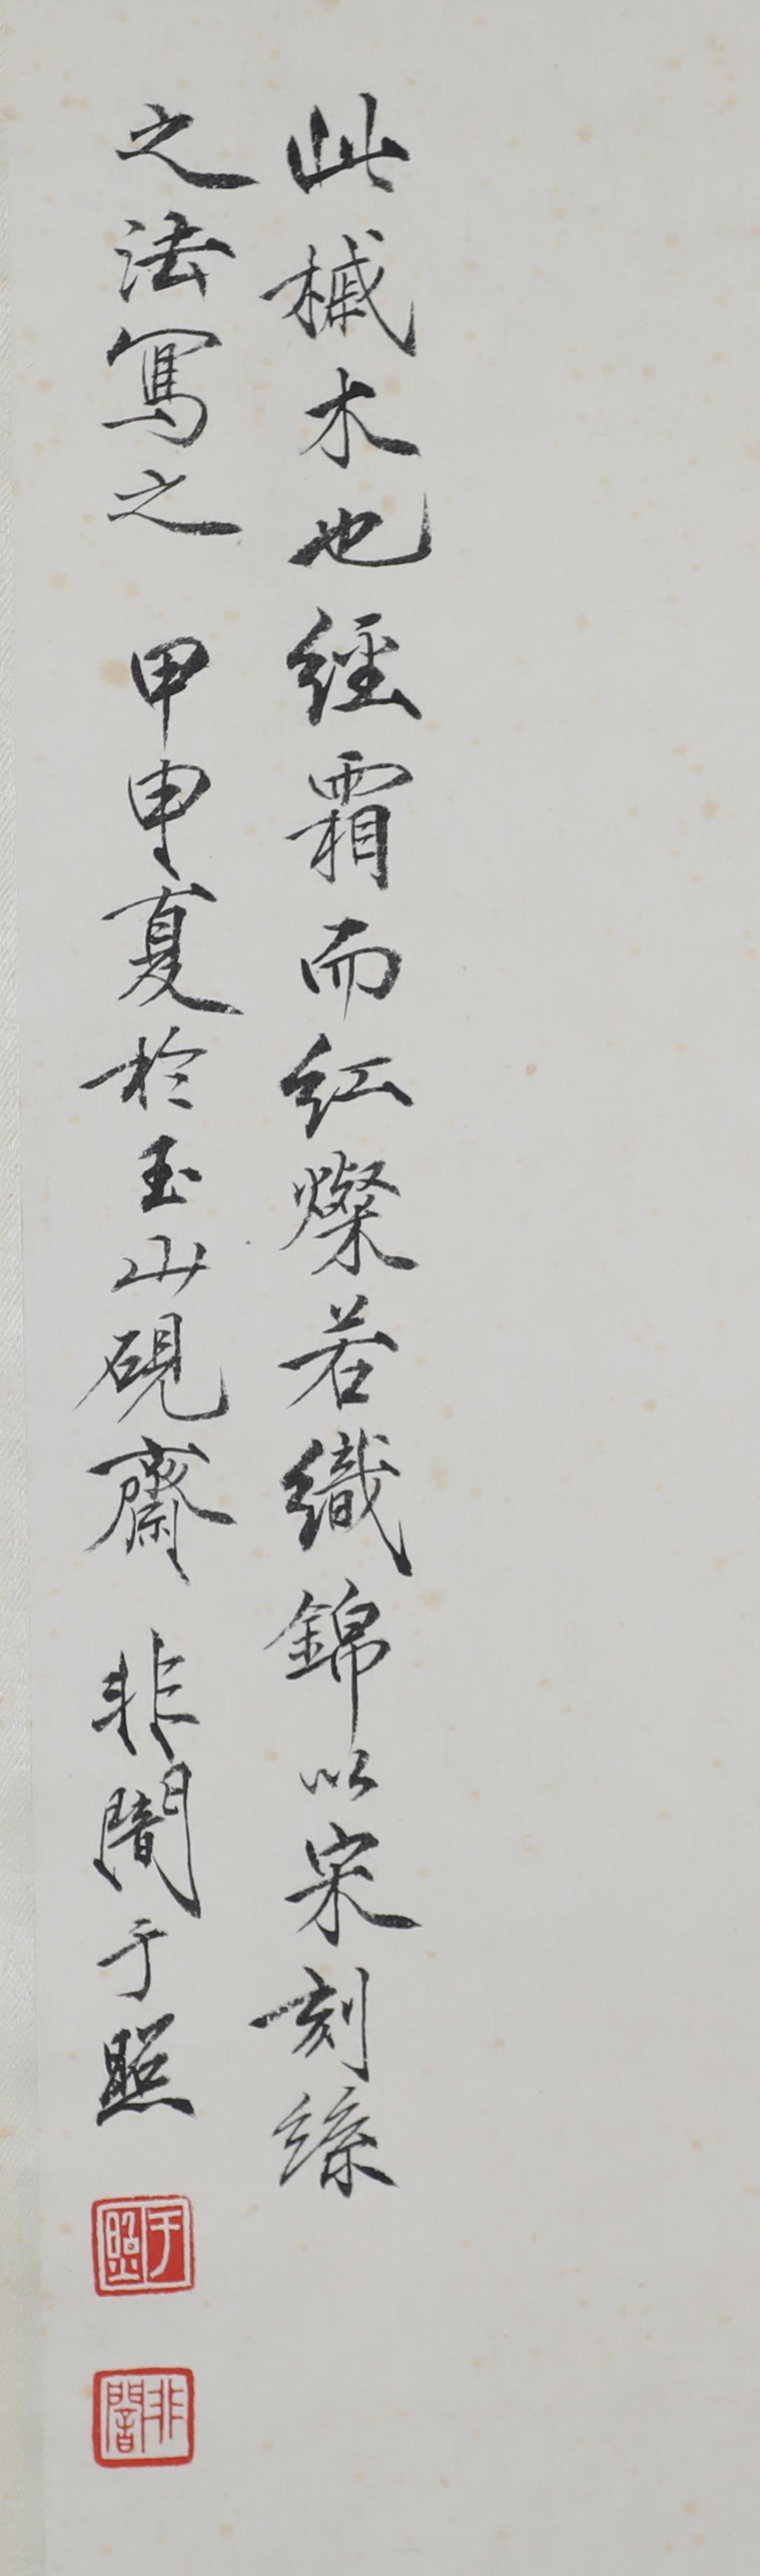 此槭木也經霜而紅燦若織錦以宋刻絲
之法寫之 甲申夏於玉山硯齋 非闇于照
于照
非闇